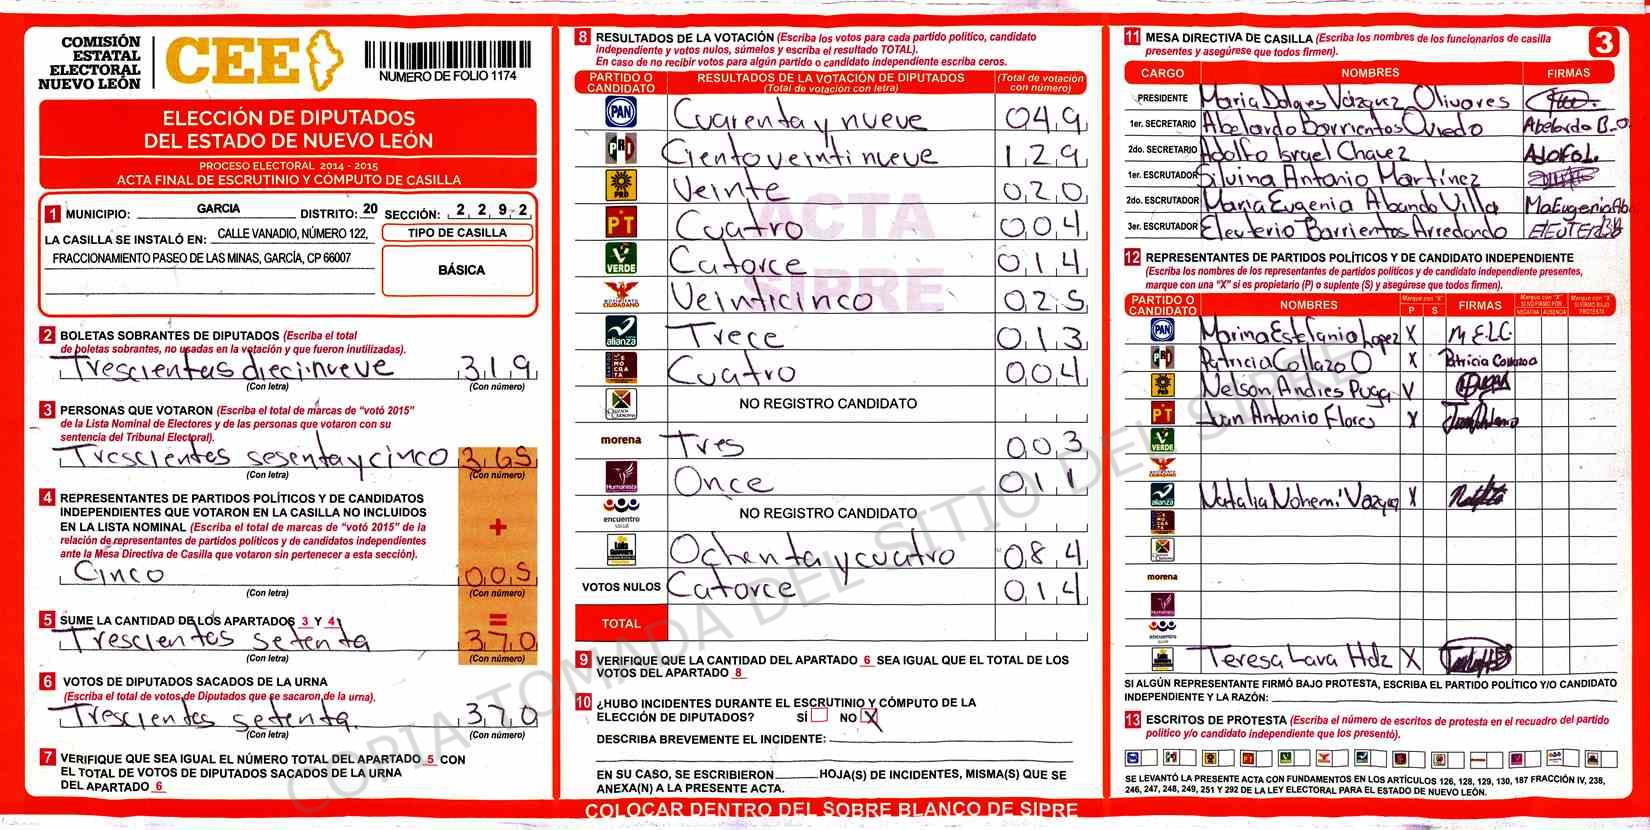 COMISIÓN
ESTATAL
ELECTORAL
NUEVO LEÓN
CEE
NUMERO DE FOLIO 1174
ELECCIÓN DE DIPUTADOS
DEL ESTADO DE NUEVO LEÓN
PROCESO ELECTORAL 2014 - 2015
ACTA FINAL DE ESCRUTINIO Y CÓMPUTO DE CASILLA
1 MUNICIPIO: GARCIA DISTRITO: 20 SECCIÓN: 2 2 9 2
LA CASILLA SE INSTALÓ EN: CALLE VANADIO, NÚMERO 122,
FRACCIONAMIENTO PASEO DE LAS MINAS, GARCÍA, CP 66007
TIPO DE CASILLA
BÁSICA
2 BOLETAS SOBRANTES DE DIPUTADOS (Escriba el total
de boletas sobrantes, no usadas en la votación y que fueron inutilizadas).
Trescientas diecinueve 3 1 9
(Con letra) (Con número)
3 PERSONAS QUE VOTARON (Escriba el total de marcas de "votó 2015"
de la Lista Nominal de Electores y de las personas que votaron con su
sentencia del Tribunal Electoral).
Trescientes sesenta y cinco 3 6 5
(Con letra) (Con número)
4 REPRESENTANTES DE PARTIDOS POLÍTICOS Y DE CANDIDATOS
INDEPENDIENTES QUE VOTARON EN LA CASILLA NO INCLUIDOS
EN LA LISTA NOMINAL (Escriba el total de marcas de "votó 2015" de la
relación de representantes de partidos políticos y de candidatos independientes
ante la Mesa Directiva de Casilla que votaron sin pertenecer a esta sección).
+
Cinco 0 0 5
(Con letra) (Con número)
5 SUME LA CANTIDAD DE LOS APARTADOS 3 Y 4
=
Trescientos setenta 3 7 0
(Con letra) (Con número)
6 VOTOS DE DIPUTADOS SACADOS DE LA URNA
(Escriba el total de votos de Diputados que se sacaron de la urna).
Trescientos setenta 3 7 0
(Con letra) (Con número)
7 VERIFIQUE QUE SEA IGUAL EL NÚMERO TOTAL DEL APARTADO 5 CON
EL TOTAL DE VOTOS DE DIPUTADOS SACADOS DE LA URNA
DEL APARTADO 6
8 RESULTADOS DE LA VOTACIÓN (Escriba los votos para cada partido político, candidato
independiente y votos nulos, súmelos y escriba el resultado TOTAL).
En caso de no recibir votos para algún partido o candidato independiente escriba ceros.
PARTIDO O CANDIDATO RESULTADOS DE LA VOTACIÓN DE DIPUTADOS (Total de votación con letra) (Total de votación con número)
PAN Cuarenta y nueve 0 4 9
PRI Ciento veinti nueve 1 2 9
PRD Veinte 0 2 0
PT Cuatro 0 0 4
VERDE Catorce 0 1 4
MOVIMIENTO CIUDADANO Veinticinco 0 2 5
alianza Trece 0 1 3
DEMOCRATA Cuatro 0 0 4
NO REGISTRO CANDIDATO
morena Tres 0 0 3
Humanista Once 0 1 1
encuentro social NO REGISTRO CANDIDATO
Ochenta y cuatro 0 8 4
VOTOS NULOS Catorce 0 1 4
TOTAL
ACTA
SIPRE
9 VERIFIQUE QUE LA CANTIDAD DEL APARTADO 6 SEA IGUAL QUE EL TOTAL DE LOS
VOTOS DEL APARTADO 8
10 ¿HUBO INCIDENTES DURANTE EL ESCRUTINIO Y CÓMPUTO DE LA
ELECCIÓN DE DIPUTADOS? SÍ NO X
DESCRIBA BREVEMENTE EL INCIDENTE:
EN SU CASO, SE ESCRIBIERON HOJA(S) DE INCIDENTES, MISMA(S) QUE SE
ANEXA(N) A LA PRESENTE ACTA.
COLOCAR DENTRO DEL SOBRE BLANCO DE SIPRE
11 MESA DIRECTIVA DE CASILLA (Escriba los nombres de los funcionarios de casilla
presentes y asegúrese que todos firmen).
3
CARGO NOMBRES FIRMAS
PRESIDENTE Maria Dolores Vázquez Olivares
1er. SECRETARIO Abelardo Barrientos Oviedo Abelardo B-O
2do. SECRETARIO Adolfo Israel Chavez Adolfo L.
1er. ESCRUTADOR Silvina Antonio Martínez
2do. ESCRUTADOR Maria Eugenia Abando Villa Ma Eugenia Ab
3er. ESCRUTADOR Eleuterio Barrientos Arredondo
12 REPRESENTANTES DE PARTIDOS POLÍTICOS Y DE CANDIDATO INDEPENDIENTE
(Escriba los nombres de los representantes de partidos políticos y de candidato independiente presentes,
marque con una "X" si es propietario (P) o suplente (S) y asegúrese que todos firmen).
PARTIDO O CANDIDATO NOMBRES Marque con "X" P S FIRMAS Marque con "X" SI NO FIRMÓ POR NEGATIVA AUSENCIA Marque con "X" SI FIRMÓ BAJO PROTESTA
PAN Marina Estefania Lopez X M E L C
PRI Patricia Collazo O X Patricia Collazo O
PRD Nelson Andres Puga X
PT Juan Antonio Flores X
VERDE
alianza Natalia Nohemi Vazquez X
morena
Humanista
encuentro social
Teresa Lara Hdz X
SI ALGÚN REPRESENTANTE FIRMÓ BAJO PROTESTA, ESCRIBA EL PARTIDO POLÍTICO Y/O CANDIDATO
INDEPENDIENTE Y LA RAZÓN:
13 ESCRITOS DE PROTESTA (Escriba el número de escritos de protesta en el recuadro del partido
político y/o candidato independiente que los presentó).
SE LEVANTÓ LA PRESENTE ACTA CON FUNDAMENTOS EN LOS ARTÍCULOS 126, 128, 129, 130, 187 FRACCIÓN IV, 238,
246, 247, 248, 249, 251 Y 292 DE LA LEY ELECTORAL PARA EL ESTADO DE NUEVO LEÓN.
COPIA TOMADA DEL SITIO DEL SIPRE